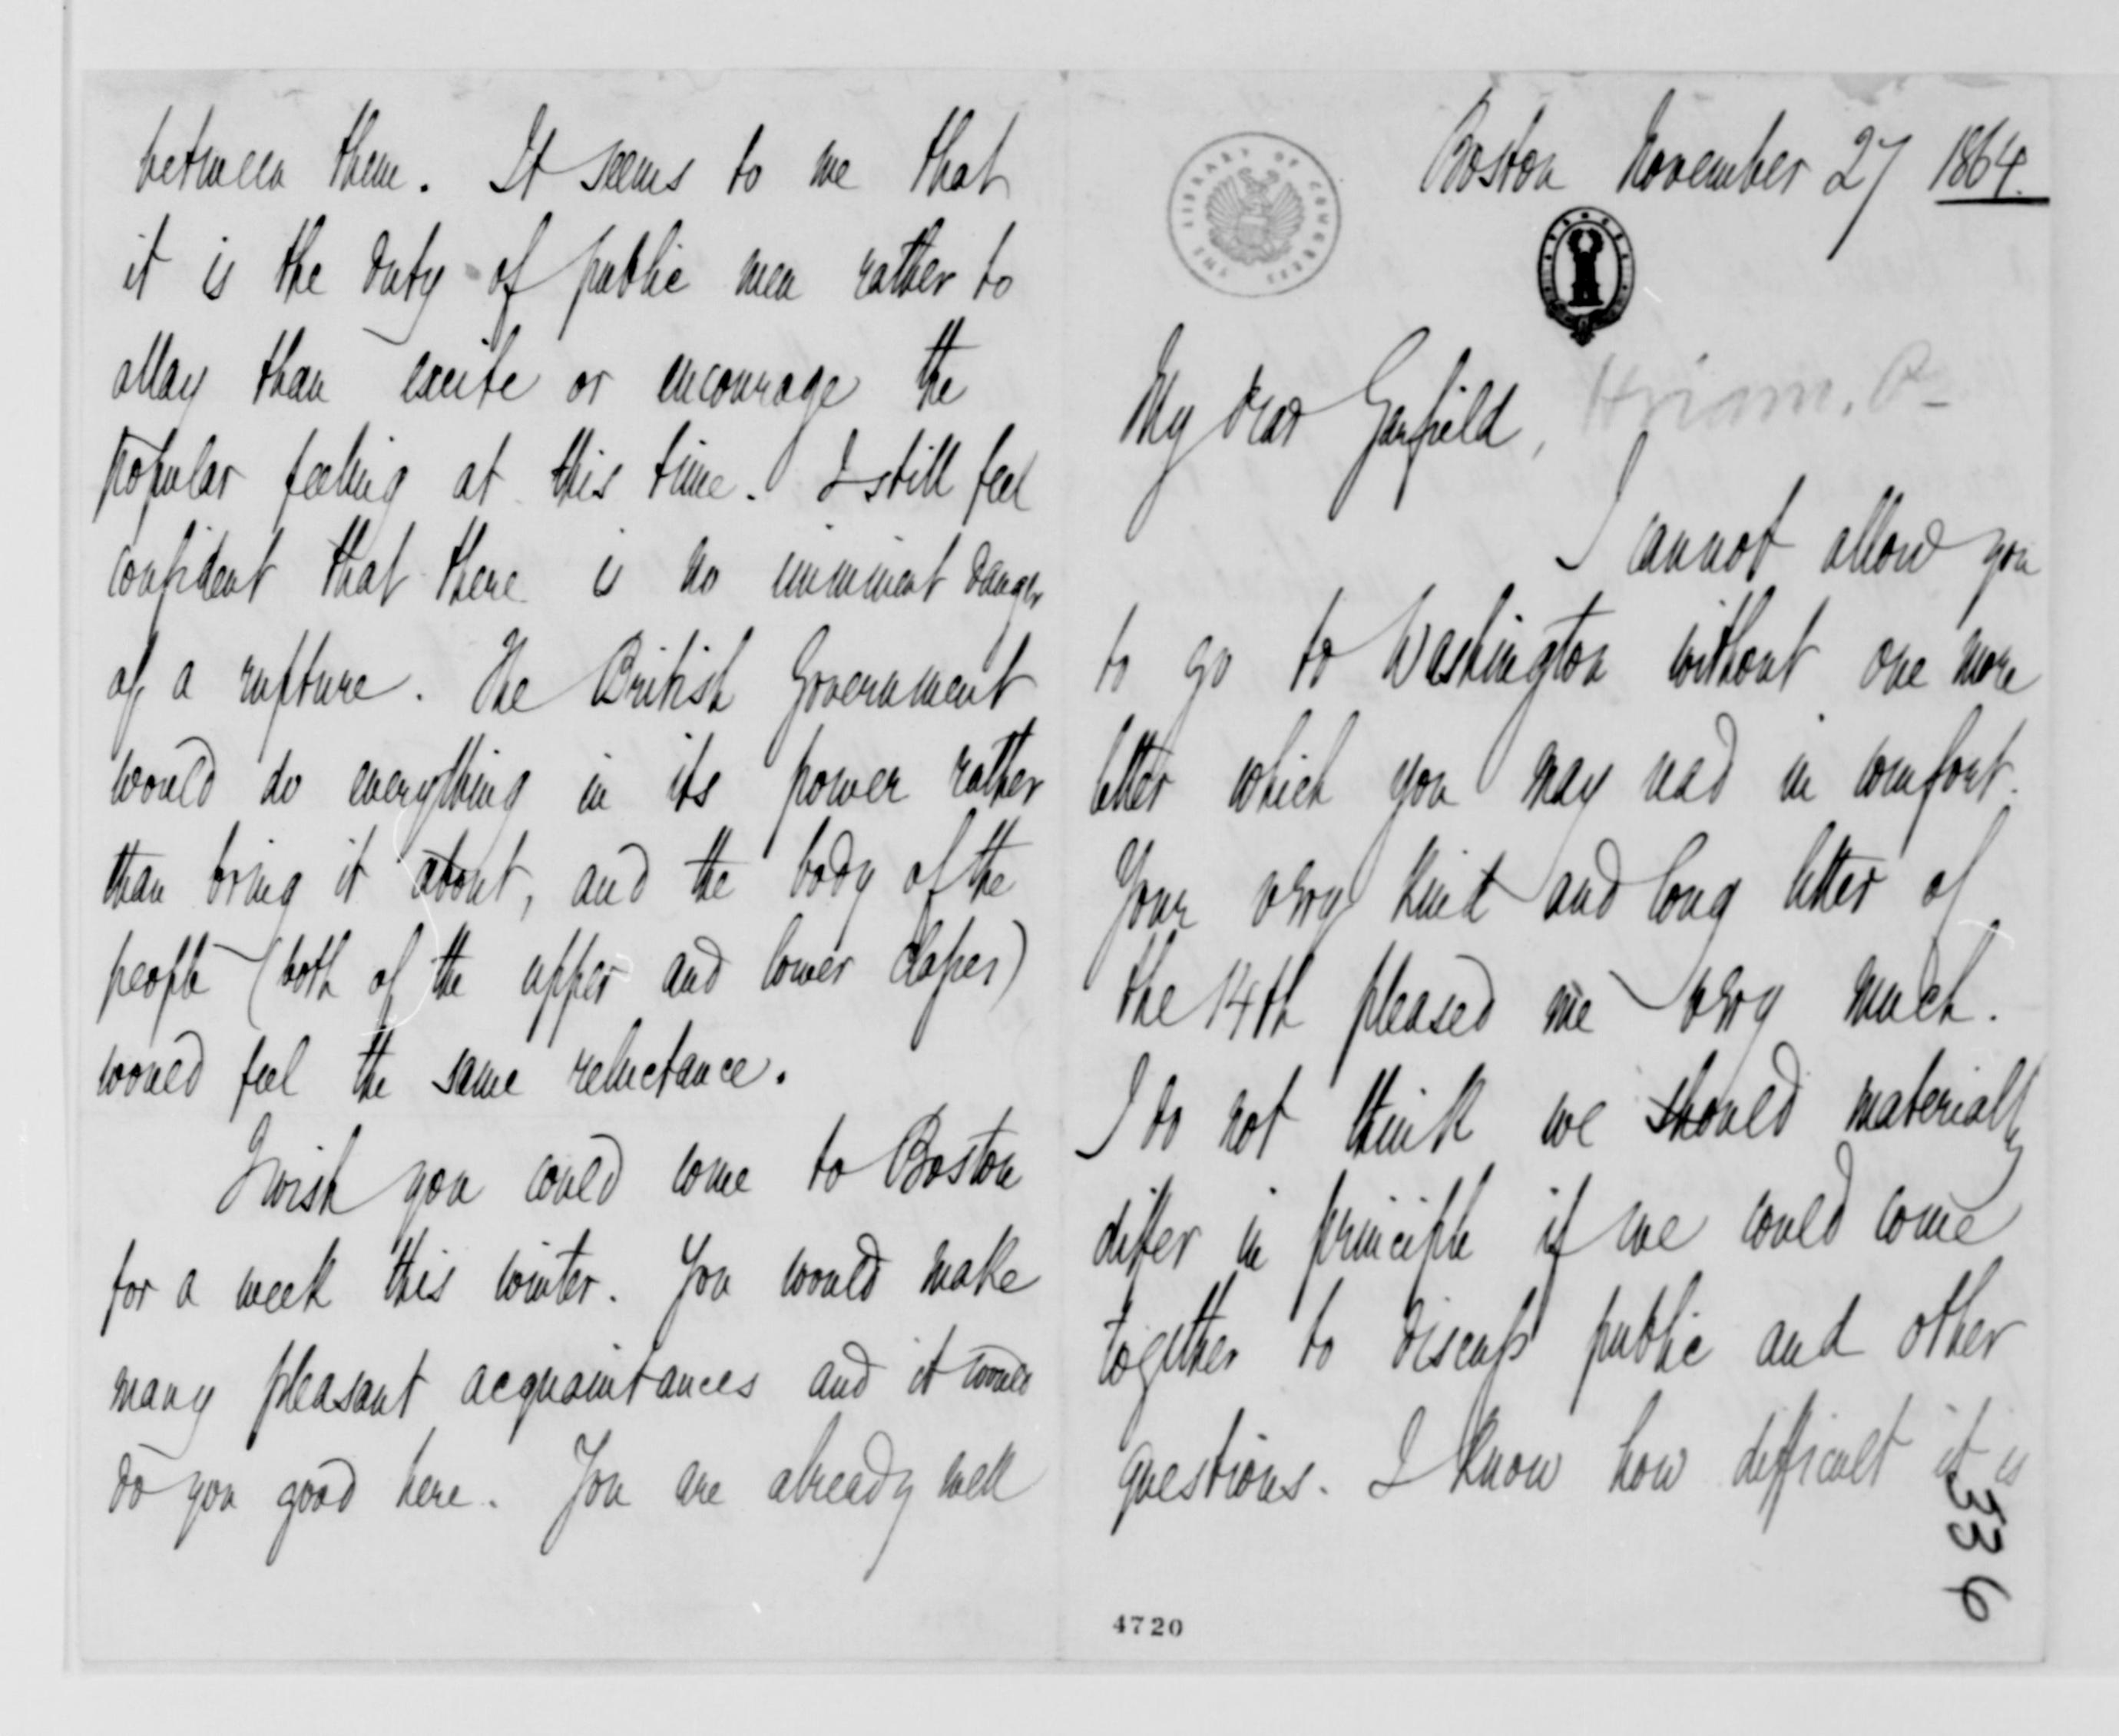 between them. It seems to me that
it is the duty of public men rather to
allay than excite or encourage the
popular feeling at this time. I still feel
confident that there is no imminent danger
of a rupture. The British Government
would do everything in its power rather
than bring it about, and the body of the
people (both of the upper and lower classes)
would feel the same reluctance.
I wish you could come to Boston
for a week this winter. You would make
many pleasant acquaintances and it would
do you good here. You are already well
THE LIBRARY OF CONGRESS
Boston November 27 1864.
My dear Garfield, Hiram. O-
I cannot allow you
to go to Washington without one more
letter which you may read in comfort.
Your very kind and long letter of
the 14th pleased me very much.
I do not think we should materially
differ in principle if we could come
together to discuss public and other
questions. I know how difficult it is
336
4720